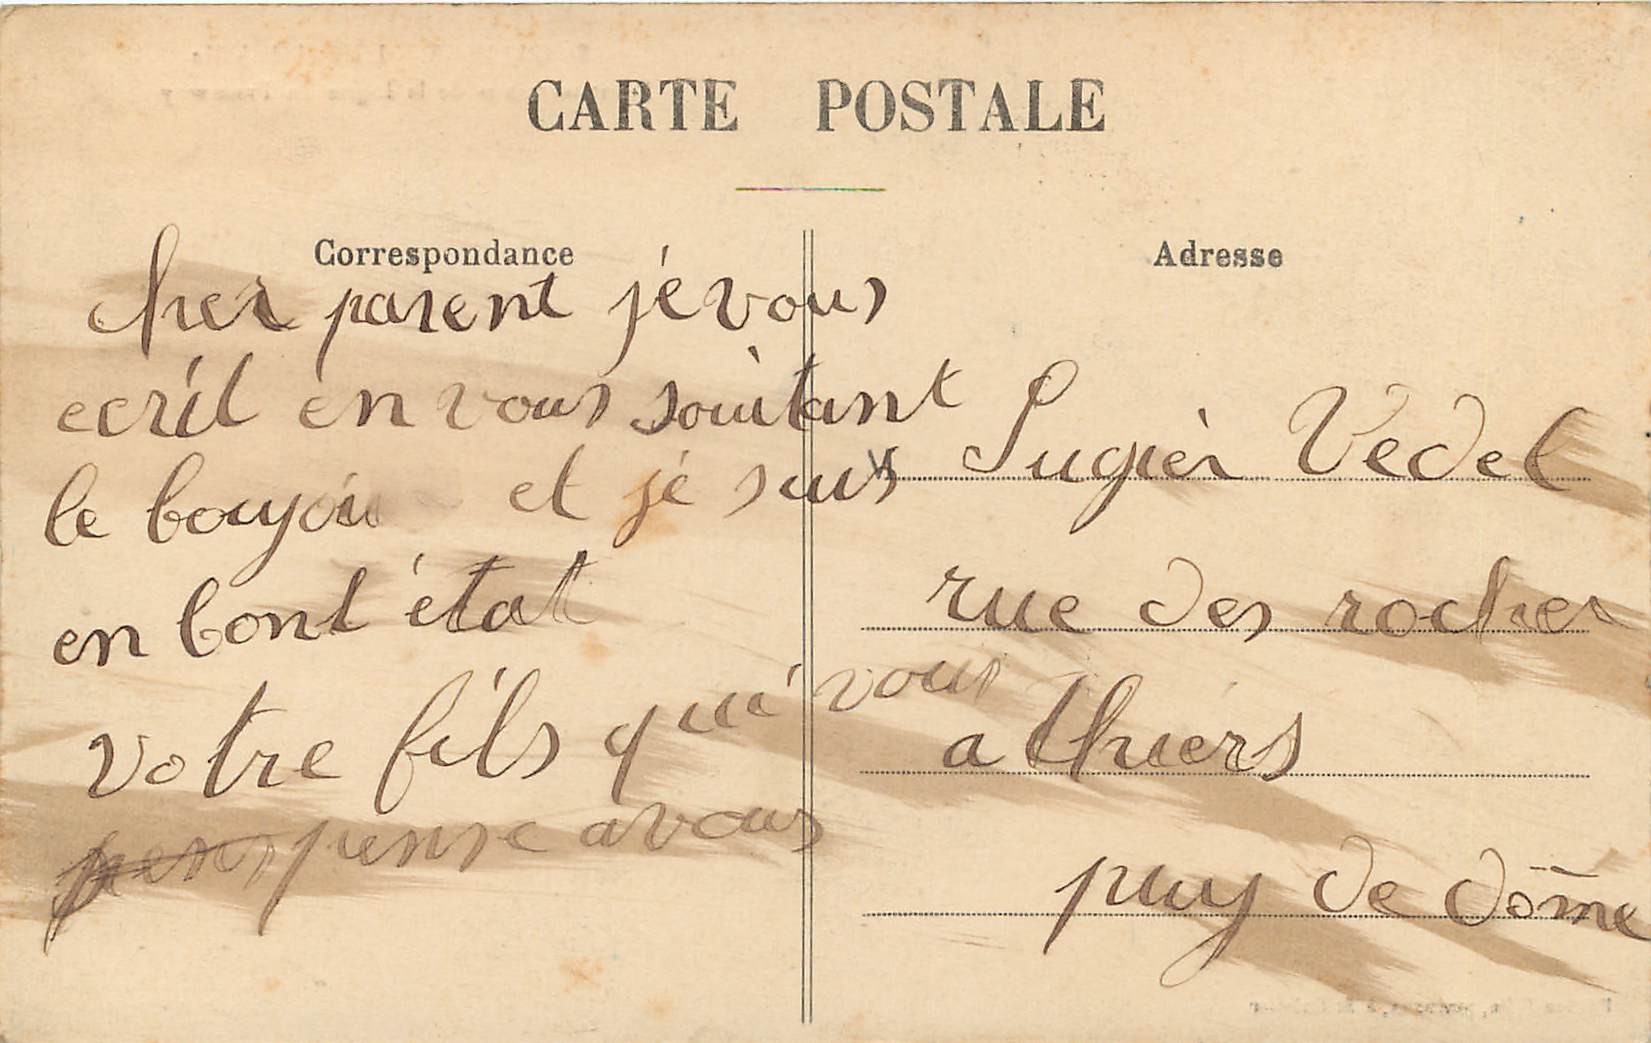 CARTE POSTALE
Correspondance
cher parent je vous
ecrit en vous souitant
le boujou et je suis
en bont état
votre fils qui vous
pense a vous
Adresse
Vedel
rue des rocher
a thiers
puy de dôme